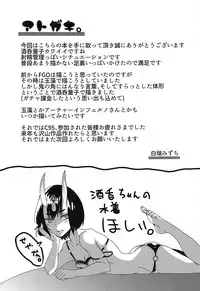 アトガキ。
今回はこちらの本を手に取って頂き誠にありがとうございます
酒呑童子カワイイですね
射精管理っぽいシチュエーションですし
普段あまり描かない足裏いっぱいかけたので満足です
前からFGOは描こうと思っていたのですが
その時は玉藻で描こうかなと
しかし鬼の角にはんなり言葉、そして体すらっとした体形
ということで酒呑童子で描きました
(ガチャ課金したしという思いも込めて)
玉藻とかアーチャーインフェルノさんとか
いつか描いてみたいです
それではC95、参加された皆様お疲れさまでした
それではまた次回よろしくお願いいたします
白瑞みずち
酒呑ちゃんの
水着
ほしい。